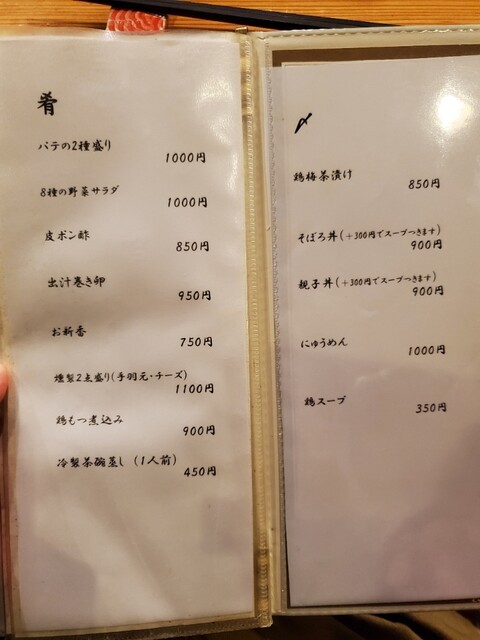 肴
パテの2種盛り
1000円
8種の野菜サラダ
1000円
皮ポン酢
850円
出汁巻き卵
950円
お新香
750円
燻製2点盛り(手羽元・チーズ)
1100円
鶏もつ煮込み
900円
冷製茶碗蒸し (1人前)
450円
〆
鶏梅茶漬け
850円
そぼろ丼(+300円でスープつきます)
900円
親子丼(+300円でスープつきます)
900円
にゅうめん
1000円
鶏スープ
350円